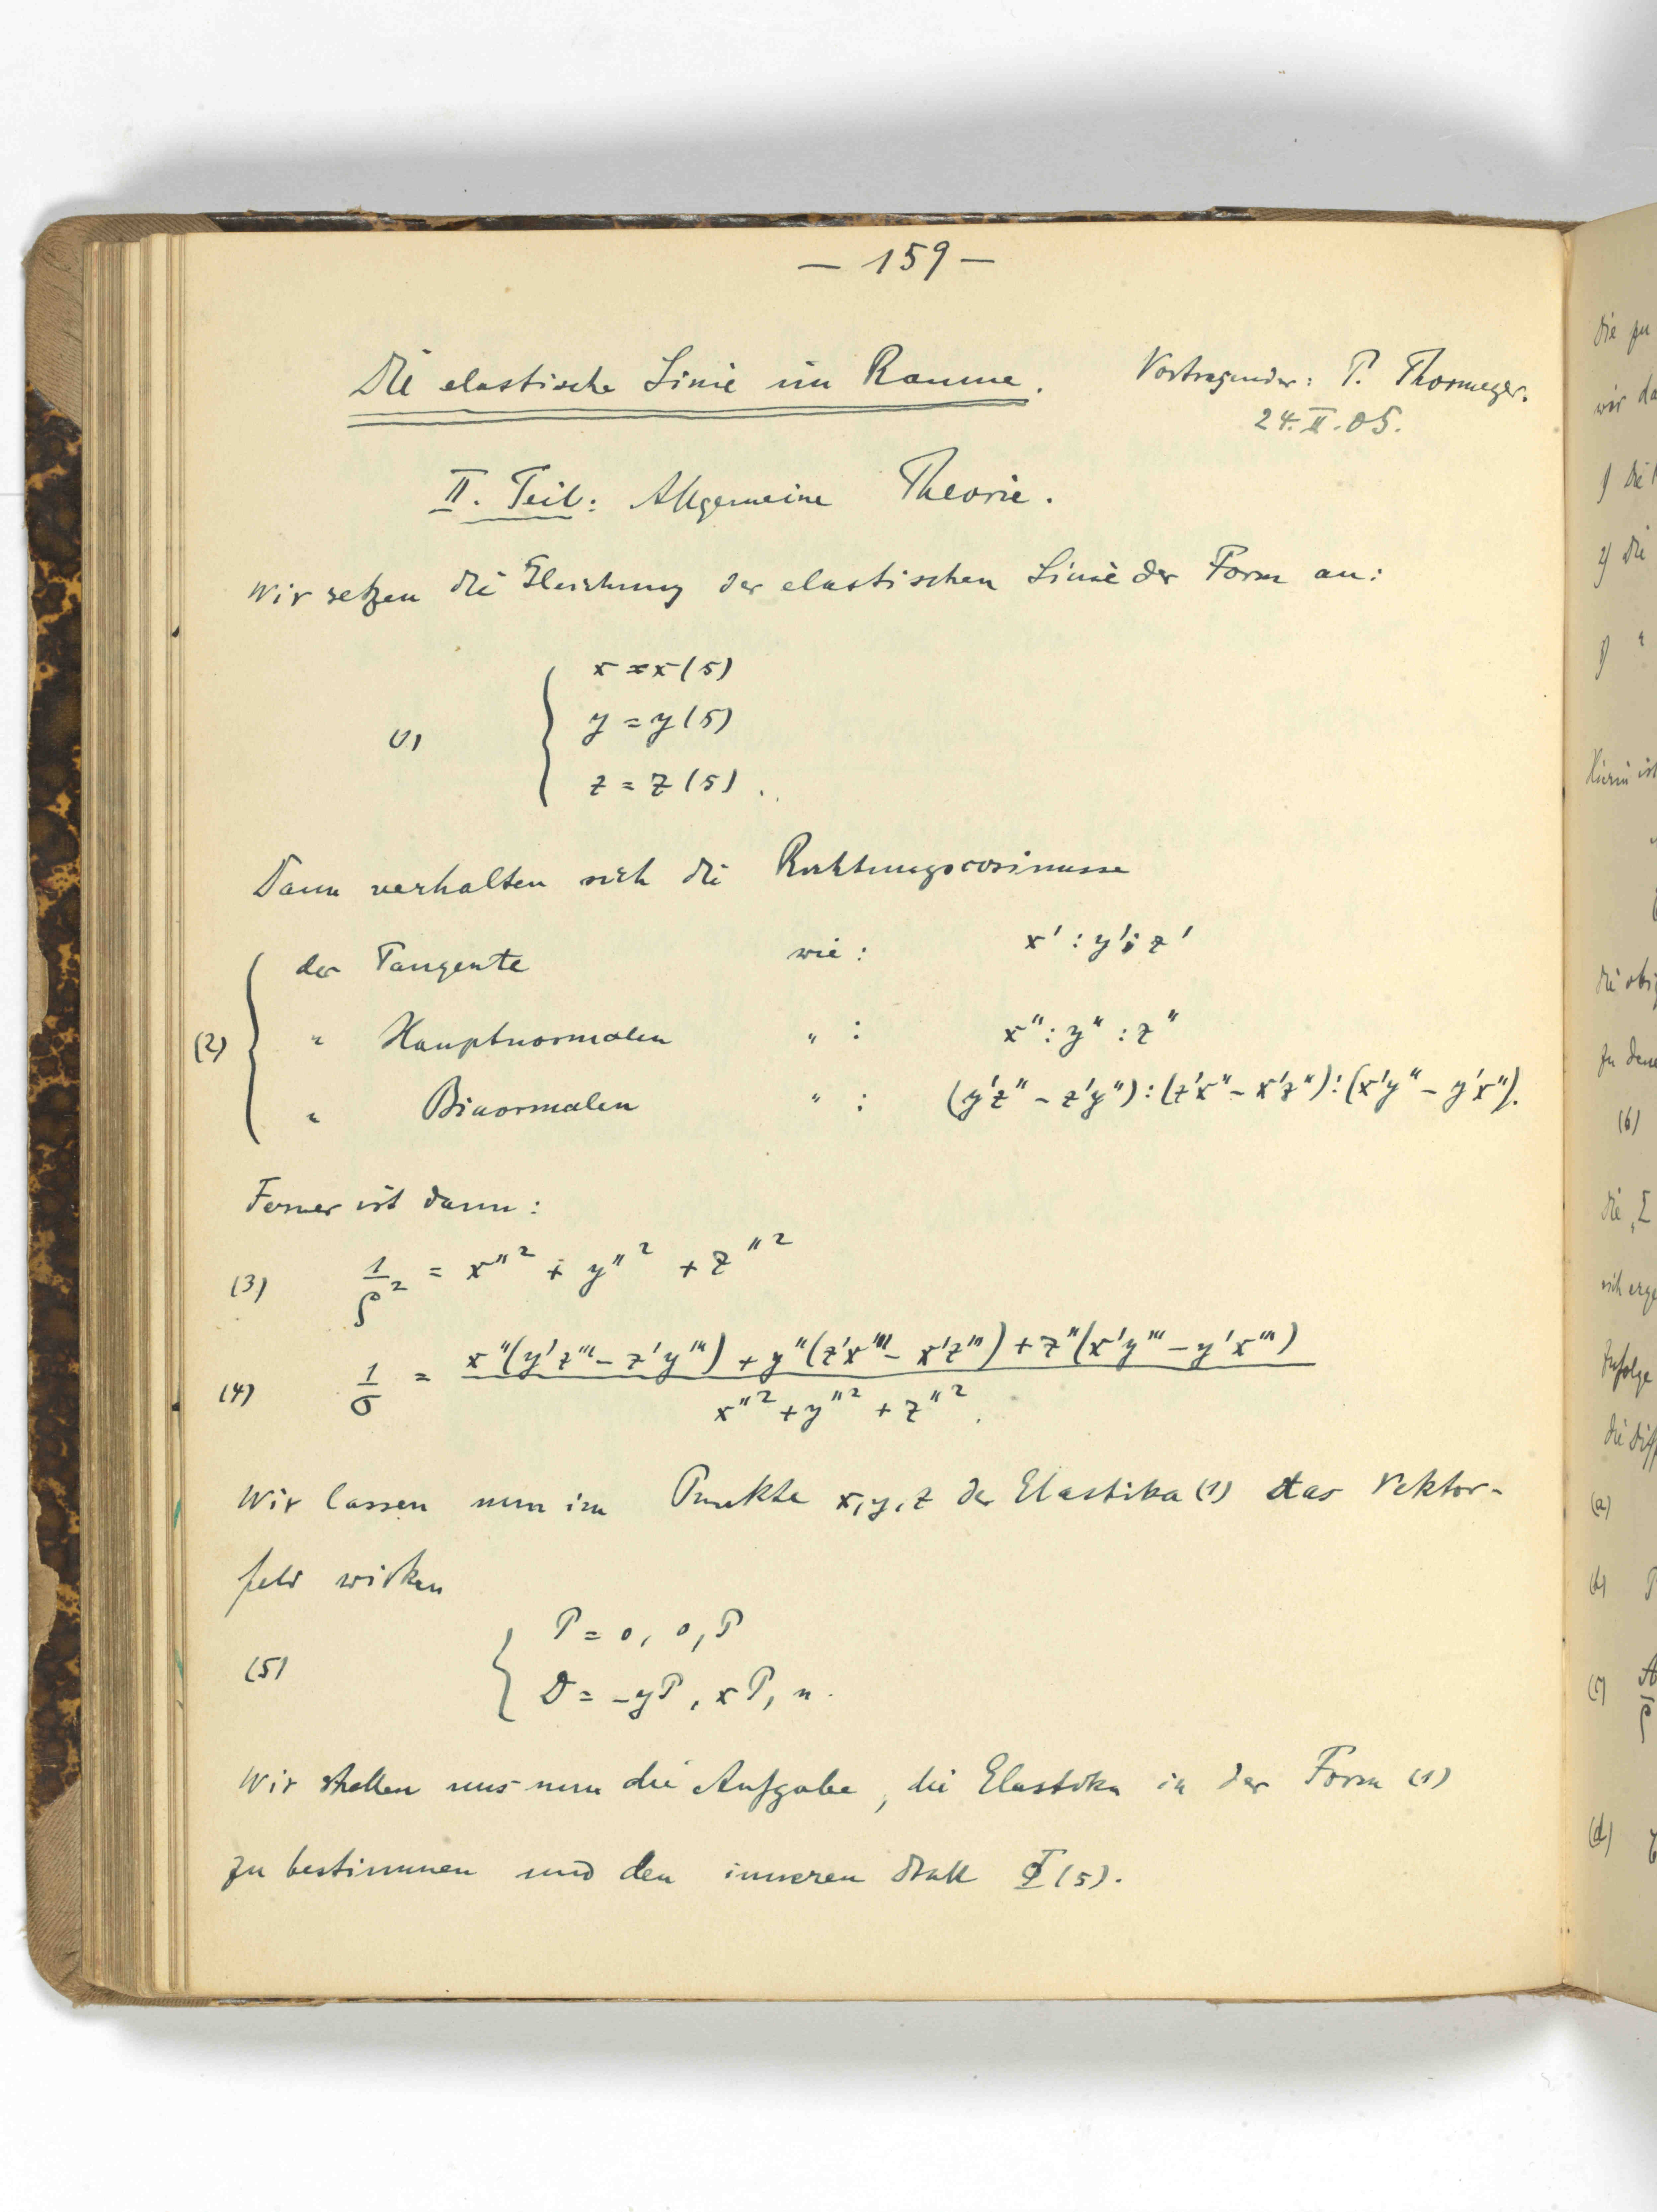 — 159 —
Die elastische Linie im Raume. Vortragender: P. Thormeyer.
24. II. 05.
II. Teil: Allgemeine Theorie.
Wir setzen die Gleichung der elastischen Linie der Form an:
x = x(s)
(1) y = y(s)
z = z(s).
Dann verhalten sich die Richtungscosinusse
der Tangente wie: x' : y' : z'
(2) " Hauptnormalen " : x" : y" : z"
" Binormalen " : (y'z" – z'y") : (z'x" – x'z") : (x'y" – y'x").
Ferner ist dann:
(3) 1/ρ² = x"² + y"² + z"²
(4) 1/σ = x"(y'z''' – z'y''') + y"(z'x''' – x'z''') + z"(x'y''' – y'x''')
x"² + y"² + z"².
Wir lassen nun im Punkte x, y, z der Elastika (1) das Vektor-
feld wirken
(5) P = 0, 0, P
D = –yP, xP, n.
Wir stellen uns nun die Aufgabe, die Elastika in der Form (1)
zu bestimmen und den inneren Drall (s).
die zu
wir da
1) die
2) die
3) "
Hierin ist
die obi
zu den
(6)
die
sich erge
Zufolge
die Diff
(a)
(b) P
(c)
(d)